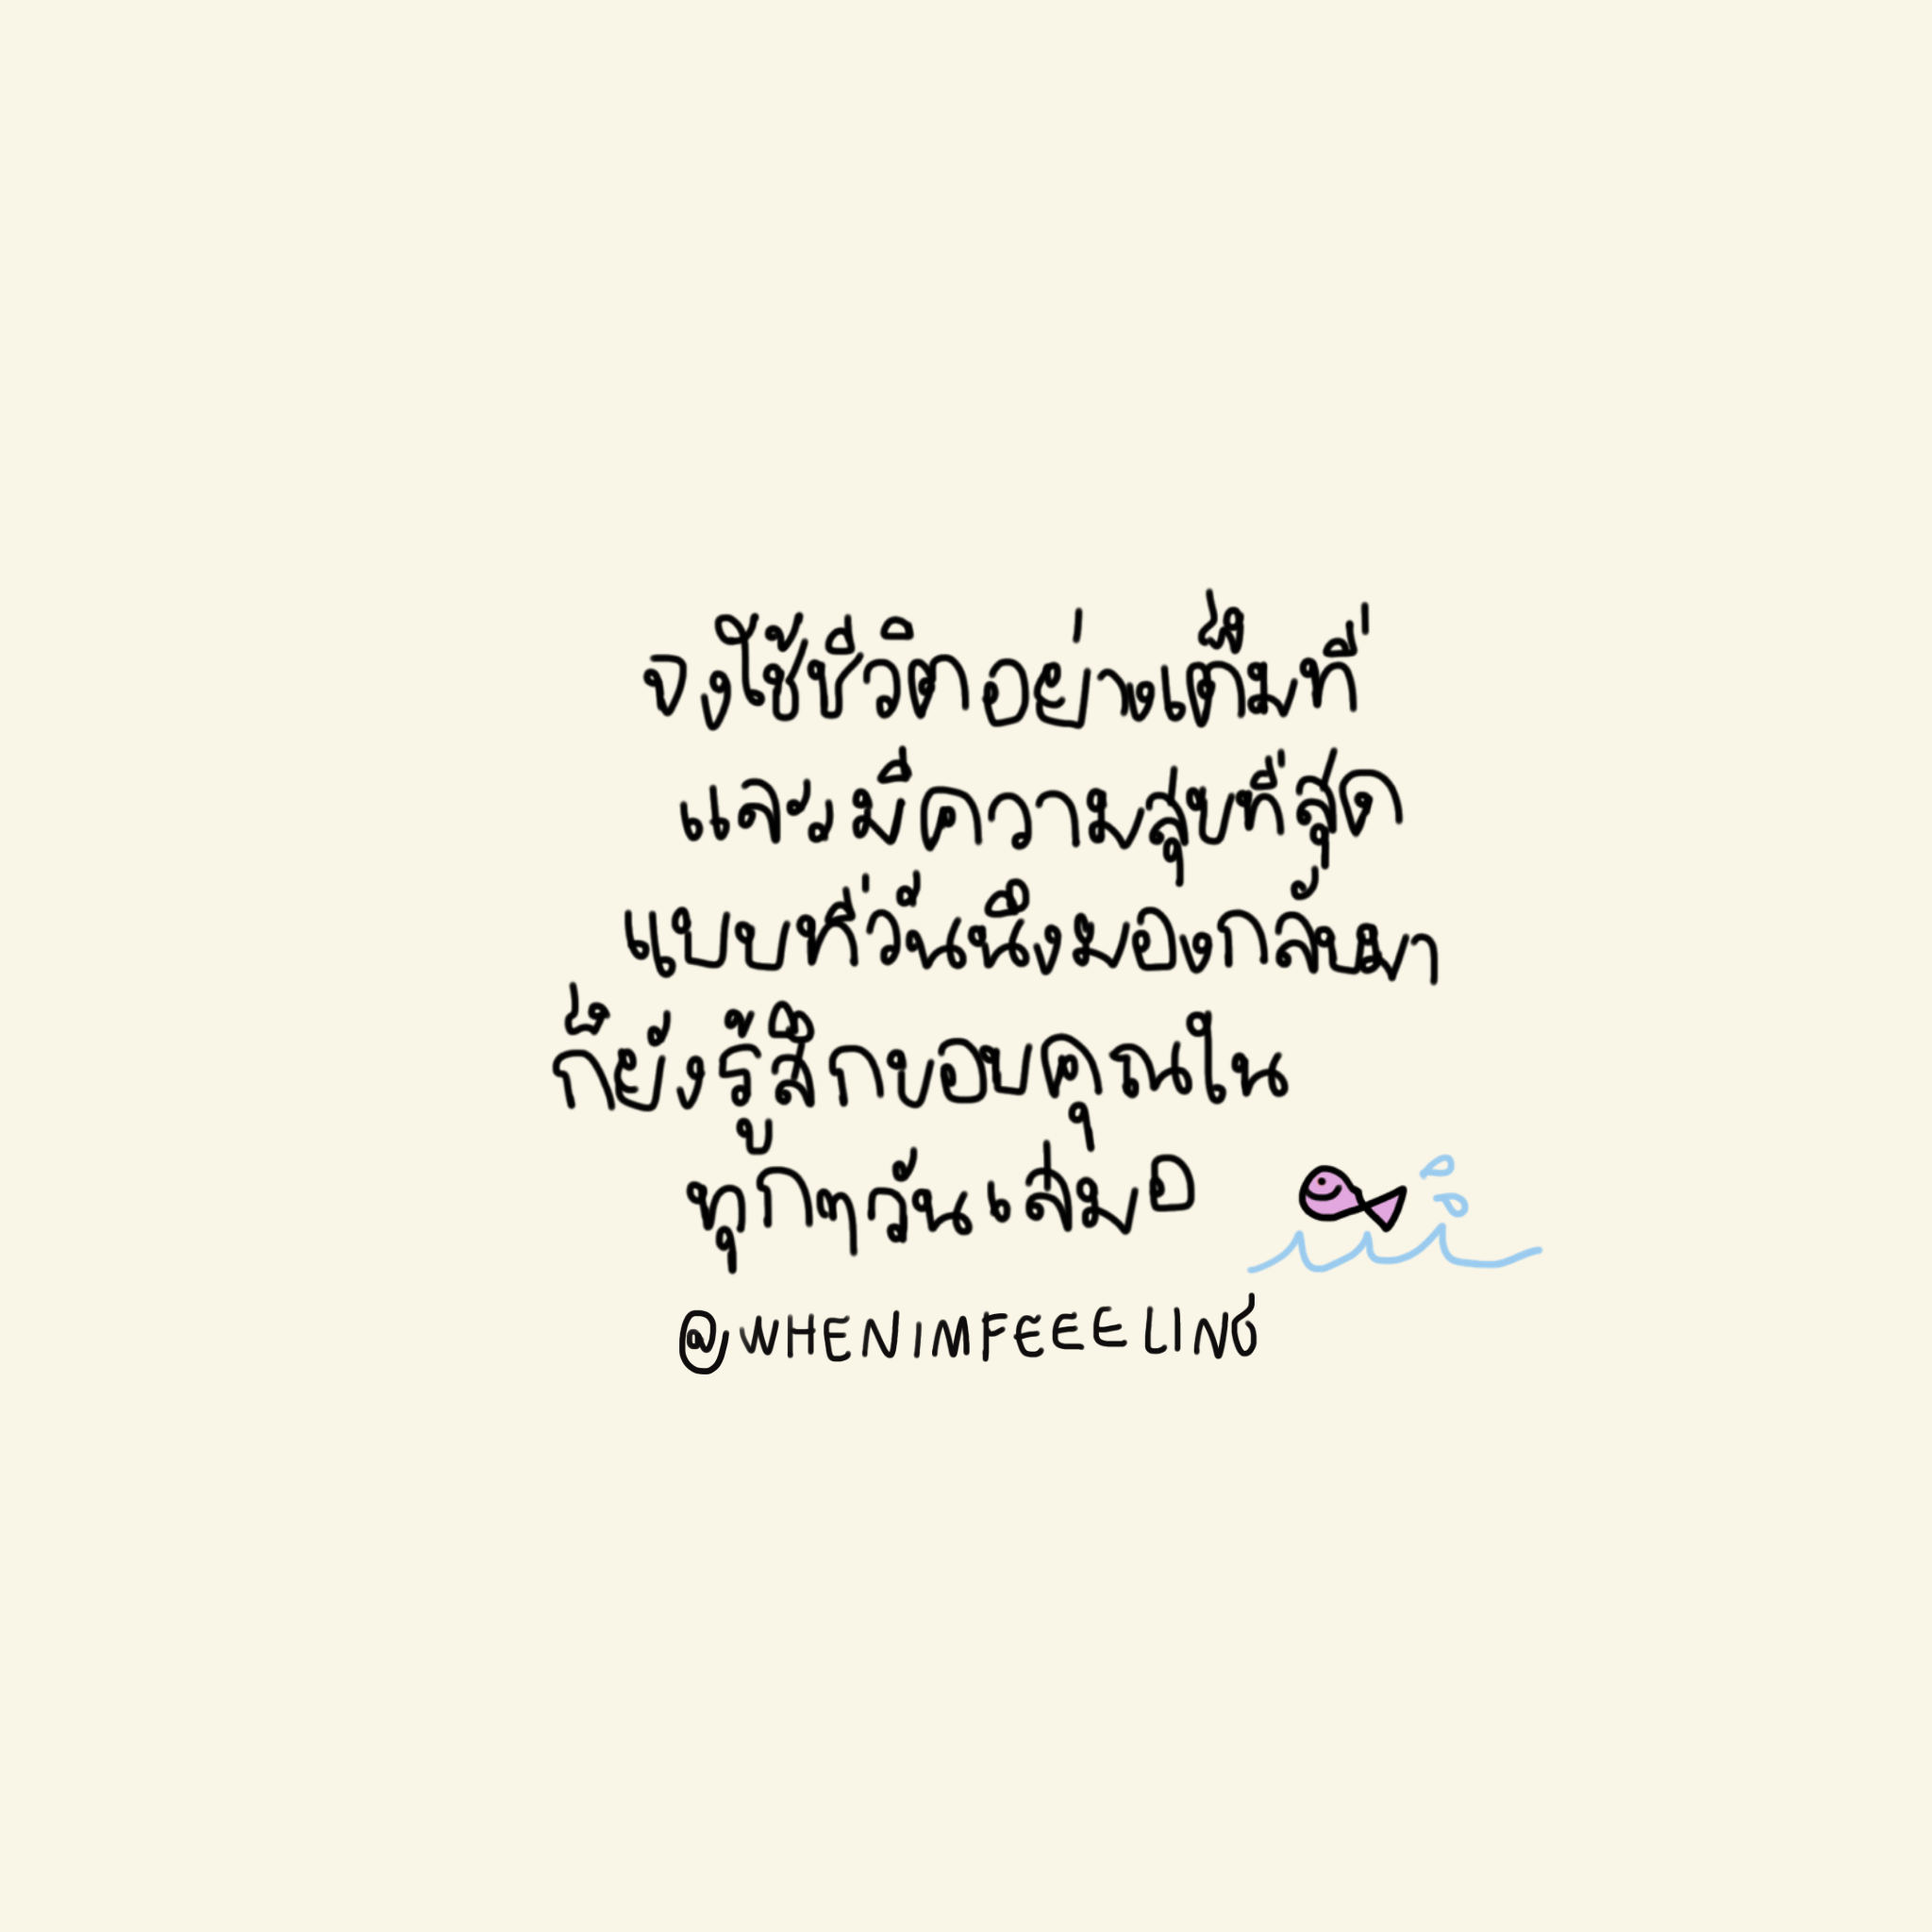 จงใช้ชีวิตอย่างเต็มที่
และมีความสุขที่สุด
แบบที่วันนึงมองกลับมา
ก็ยังรู้สึกขอบคุณใน
ทุกๆวันเสมอ
@WHENIMFEEELING